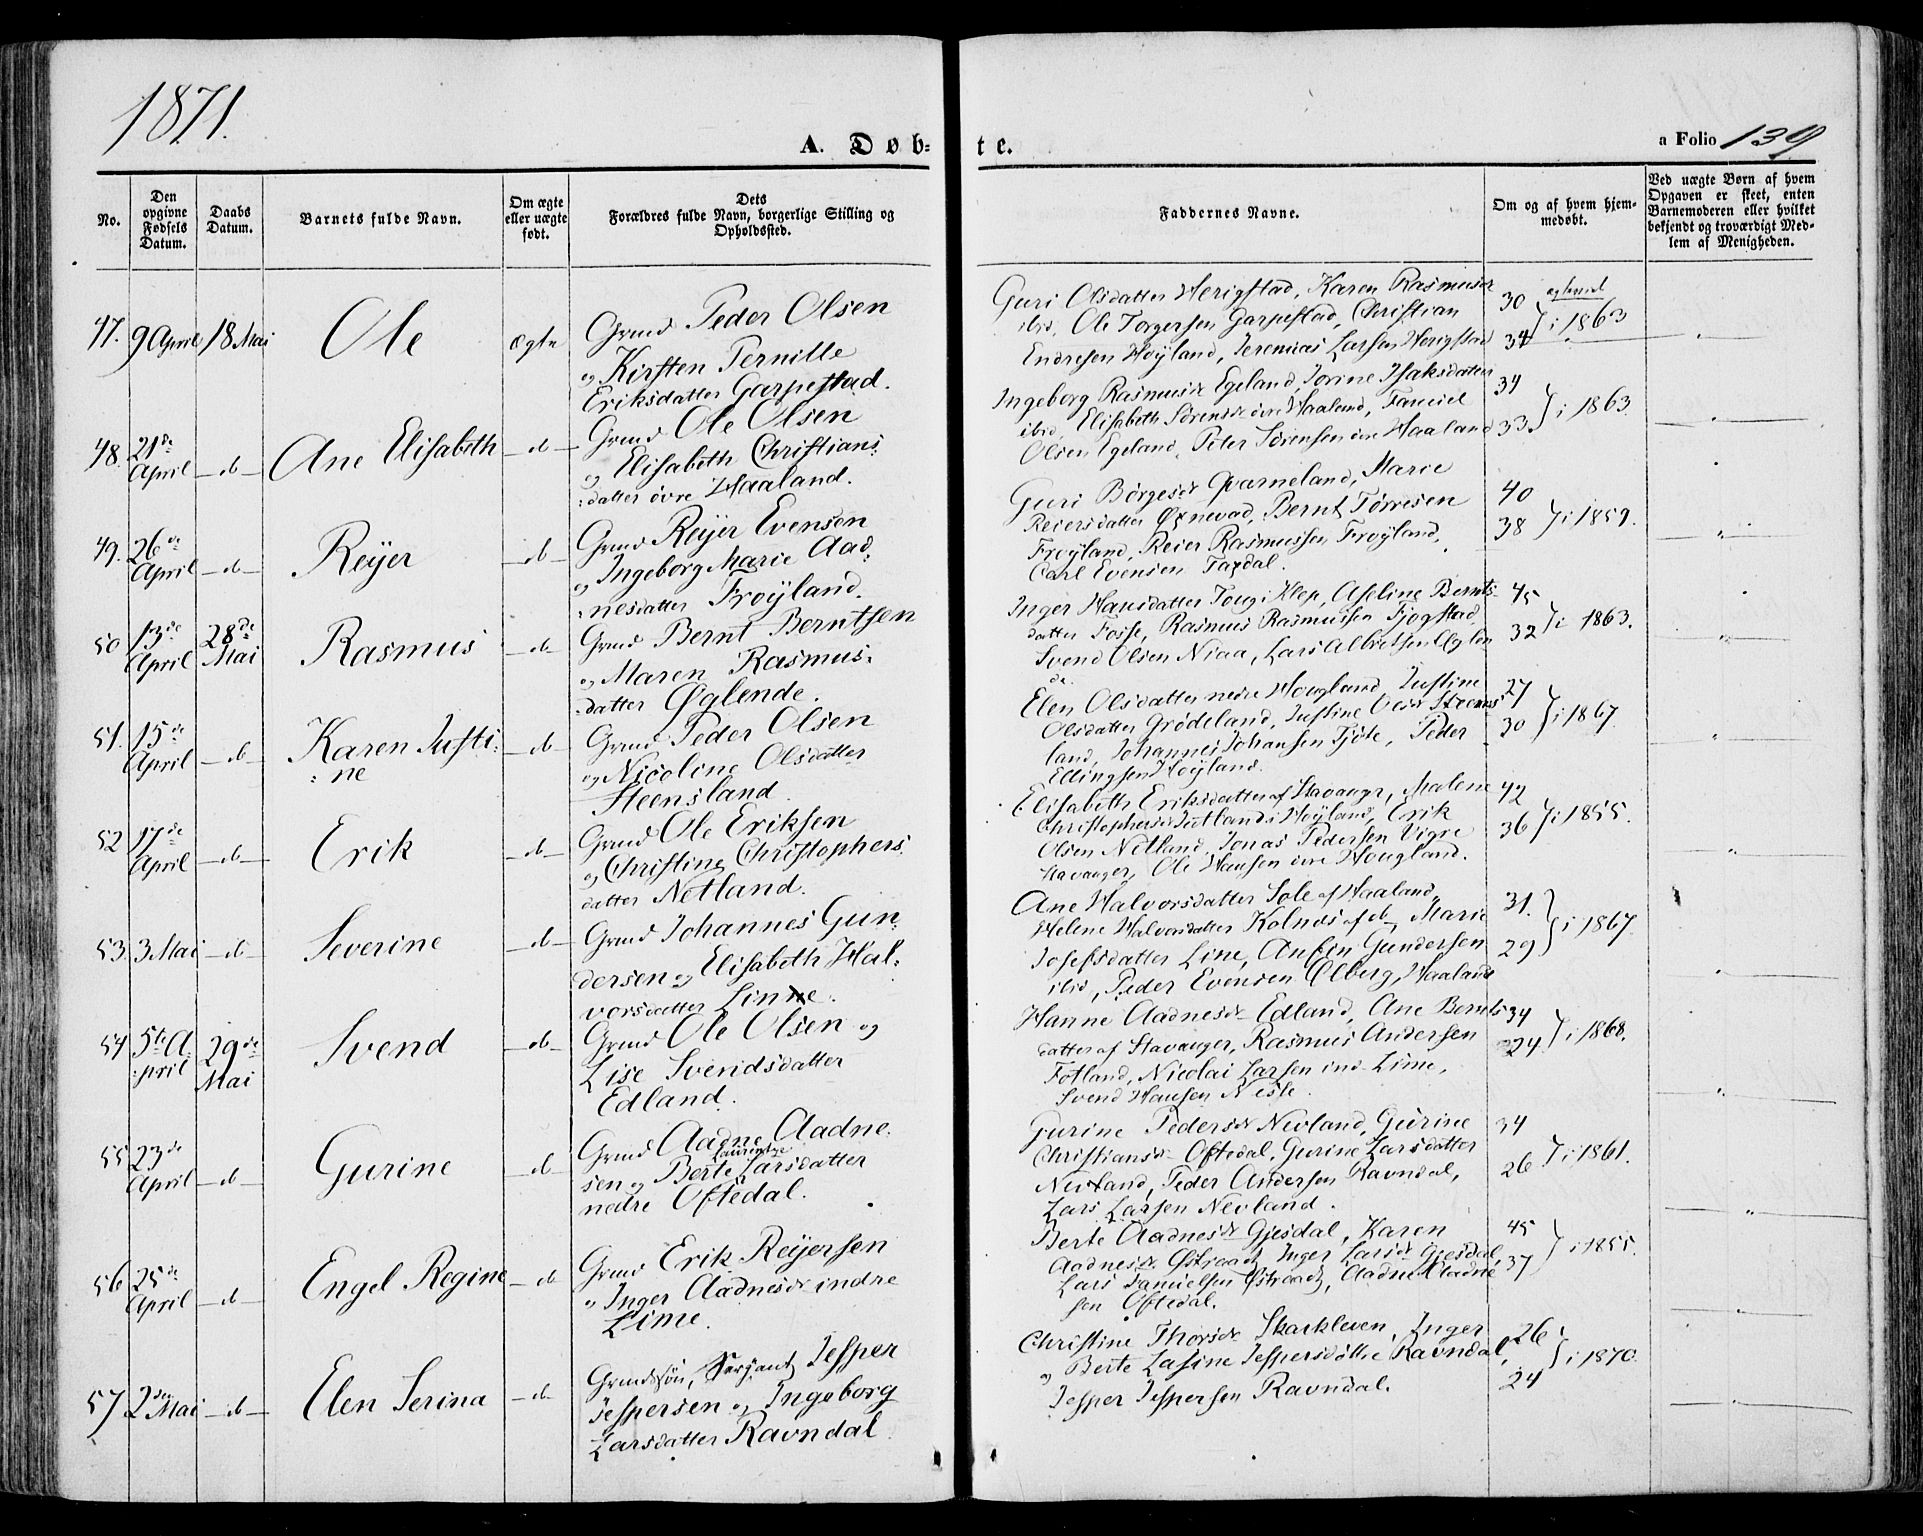 1871.
A. Døb-
te.
a Folio 139
No.
Den opgivne Fødsels Datum.
Daabs Datum.
Barnets fulde Navn.
Om ægte eller uægte født.
Dets Forældres fulde Navn, borgerlige Stilling og Opholdssted.
Faddernes Navne.
Om og af hvem hjem-
medøbt.
Ved uægte Børn af hvem
Opgaven er skeet, enten
Barnemoderen eller hvilket
bekjendt og troværdigt Med-
lem af Menigheden.
47. 9 April 18 Mai Ole ægte
Grmd Peder Olsen
og Kirsten Pernille
Eriksdatter Garpestad.
Guri Olsdatter Herigstad, Karen Rasmusdr
ibid, Ole Torgersen Garpestad, Christian
Endresen Høyland, Jeremias Larsen Herigstad
30
34 } i 1863
48. 21de April -d- Ane Elisabeth -d-
Grmd Ole Olsen
og Elisabeth Christians:
:datter övre Haaland.
Ingeborg Rasmusdr Egeland, Jorine Isaksdatter
ibid, Elisabeth Sörensdr övre Haaland, Tamiel
Olsen Egeland, Peter Sörensen övre Haaland
34
33 } i 1863.
49. 26de April -d- Reyer -d-
Grmd Reyer Evensen
og Ingeborg Marie Aad:
:nesdatter Frøyland.
Guri Börgesdr Qvarneland, Marie
Reiersdatter Øxnevad, Bernt Tørresen
Frøyland, Reier Rasmussen Frøyland,
Carl Evensen Taxdal.
40
38 } i 1859.
50 13de April 28de Mai Rasmus -d-
Grmd Bernt Berntsen
og Maren Rasmus:
:datter Øglende.
Inger Hansdatter Tou i Klep, Aseline Bernts-
datter Fosse, Rasmus Rasmussen Fjogstad
Svend Olsen Niaa, Lars Albretsen Øglen
de
45
32 } i 1863.
51. 15de April -d- Karen Justi:
:ne -d-
Grmd Peder Olsen
og Nicoline Olsdatter
Steensland
Elen Olsdatter nedre Hougland, Justine
Olsdatter Grödeland, Justine Olsdr Steens
land, Johannes Johansen Tjöte, Peder
Ellingsen Høyland.
27
30 } i 1867.
52 17de April -d- Erik -d-
Grmd Ole Eriksen
og Christine Christophers.
datter Netland.
Elisabeth Eriksdatter af Stavanger, Malene
Christophersdr Jutland i Høyland, Erik
Olsen Netland, Jonas Pedersen Vigre
Stavanger, Ole Hansen övre Hougland.
42
36 } i 1855.
53. 3 Mai -d- Severine -d-
Grmd Johannes Gun:
dersen og Elisabeth Hal:
vorsdatter Line.
Ane Halvorsdatter Sole af Haaland,
Helene Halvorsdatter Kolnæs af d, Marie
Josefsdatter Line, Anfin Gundersen
ibid, Peder Evensen Ølberg, Haaland
31.
29 } i 1867.
54 5te A:
:pril 29de Mai Svend -d-
Grmd Ole Olsen og
Lise Svendsdatter
Edland.
Hanne Aadnesdr Edland, Ane Bernts
datter af Stavanger, Rasmus Andersen
Fotland, Nicolai Larsen ind. Lime,
Svend Hansen Nesse.
34
24 } i 1868.
55 23de April -d- Gurine -d-
Grmd Aadne Aadne:
sen og Berte Laurentze Larsdatter
nedre Oftedal.
Gurine Pedersdr Nevland, Gurine
Christiansdr Oftedal, Gurine Larsdatter
Nevland, Peder Andersen Ravndal,
Lars Larsen Nevland.
34
26 } i 1861.
56 25de April -d- Engel Regine -d-
Grmd Erik Reyersen
og Inger Aadnesdr indre
Lime.
Berte Aadnesdr Gjesdal, Karen
Aadnesdr Østraadt, Inger Larsdr Gjesdal,
Lars Samuelsen Østraadt, Aadne Aadne
sen Oftedal.
45
37 } i 1855.
57 2den Mai -d- Elen Serina -d-
Grmdssön, Serjeant Jesper
Jespersen og Ingeborg
Larsdatter Ravndal.
Christine Thorsdr Skarkleven, Inger
og Berte Lasine Jespersdöttre Ravndal,
Jesper Jespersen Ravndal.
26
24 } i 1870.